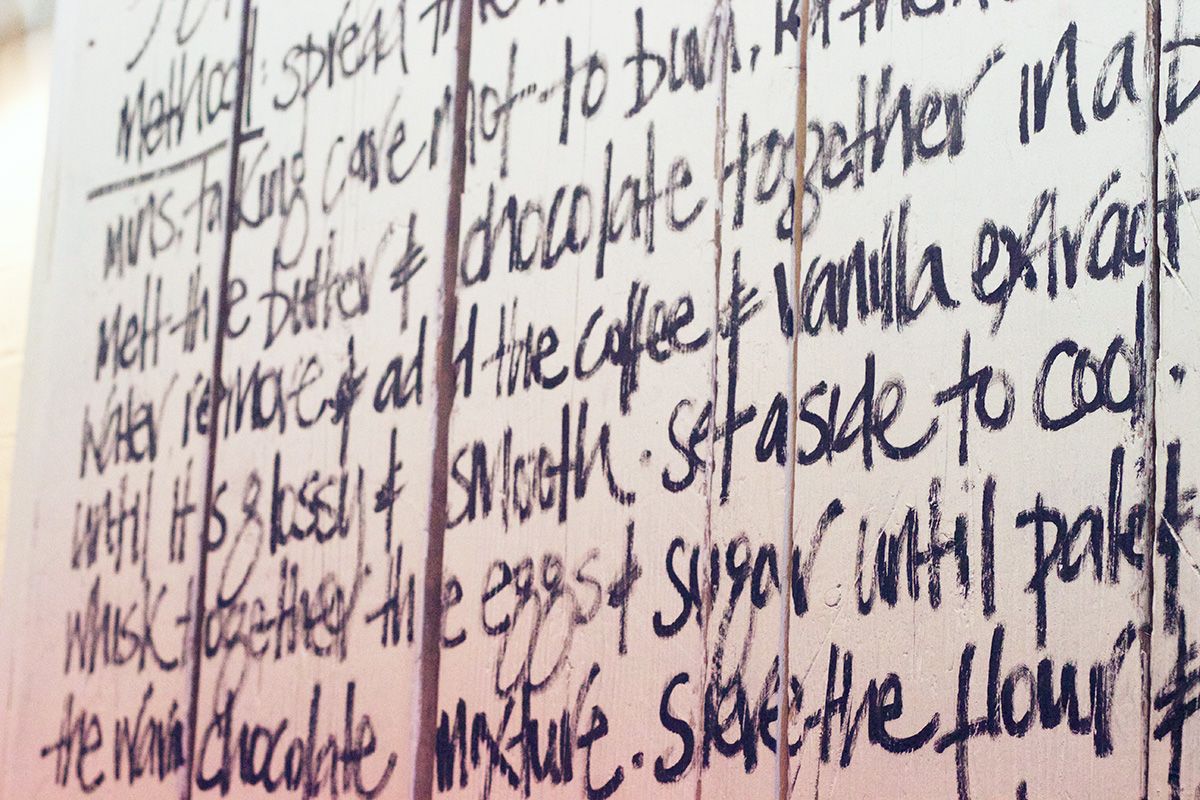 Method: spread the
mins. Taking care not to burn. Put the
Melt the butter & chocolate together in a
water remove & add the coffee & vanilla extract
until it's glossy & smooth. Set aside to cool.
whisk together the eggs & sugar until pale &
the warm chocolate mixture. Sieve the flour &